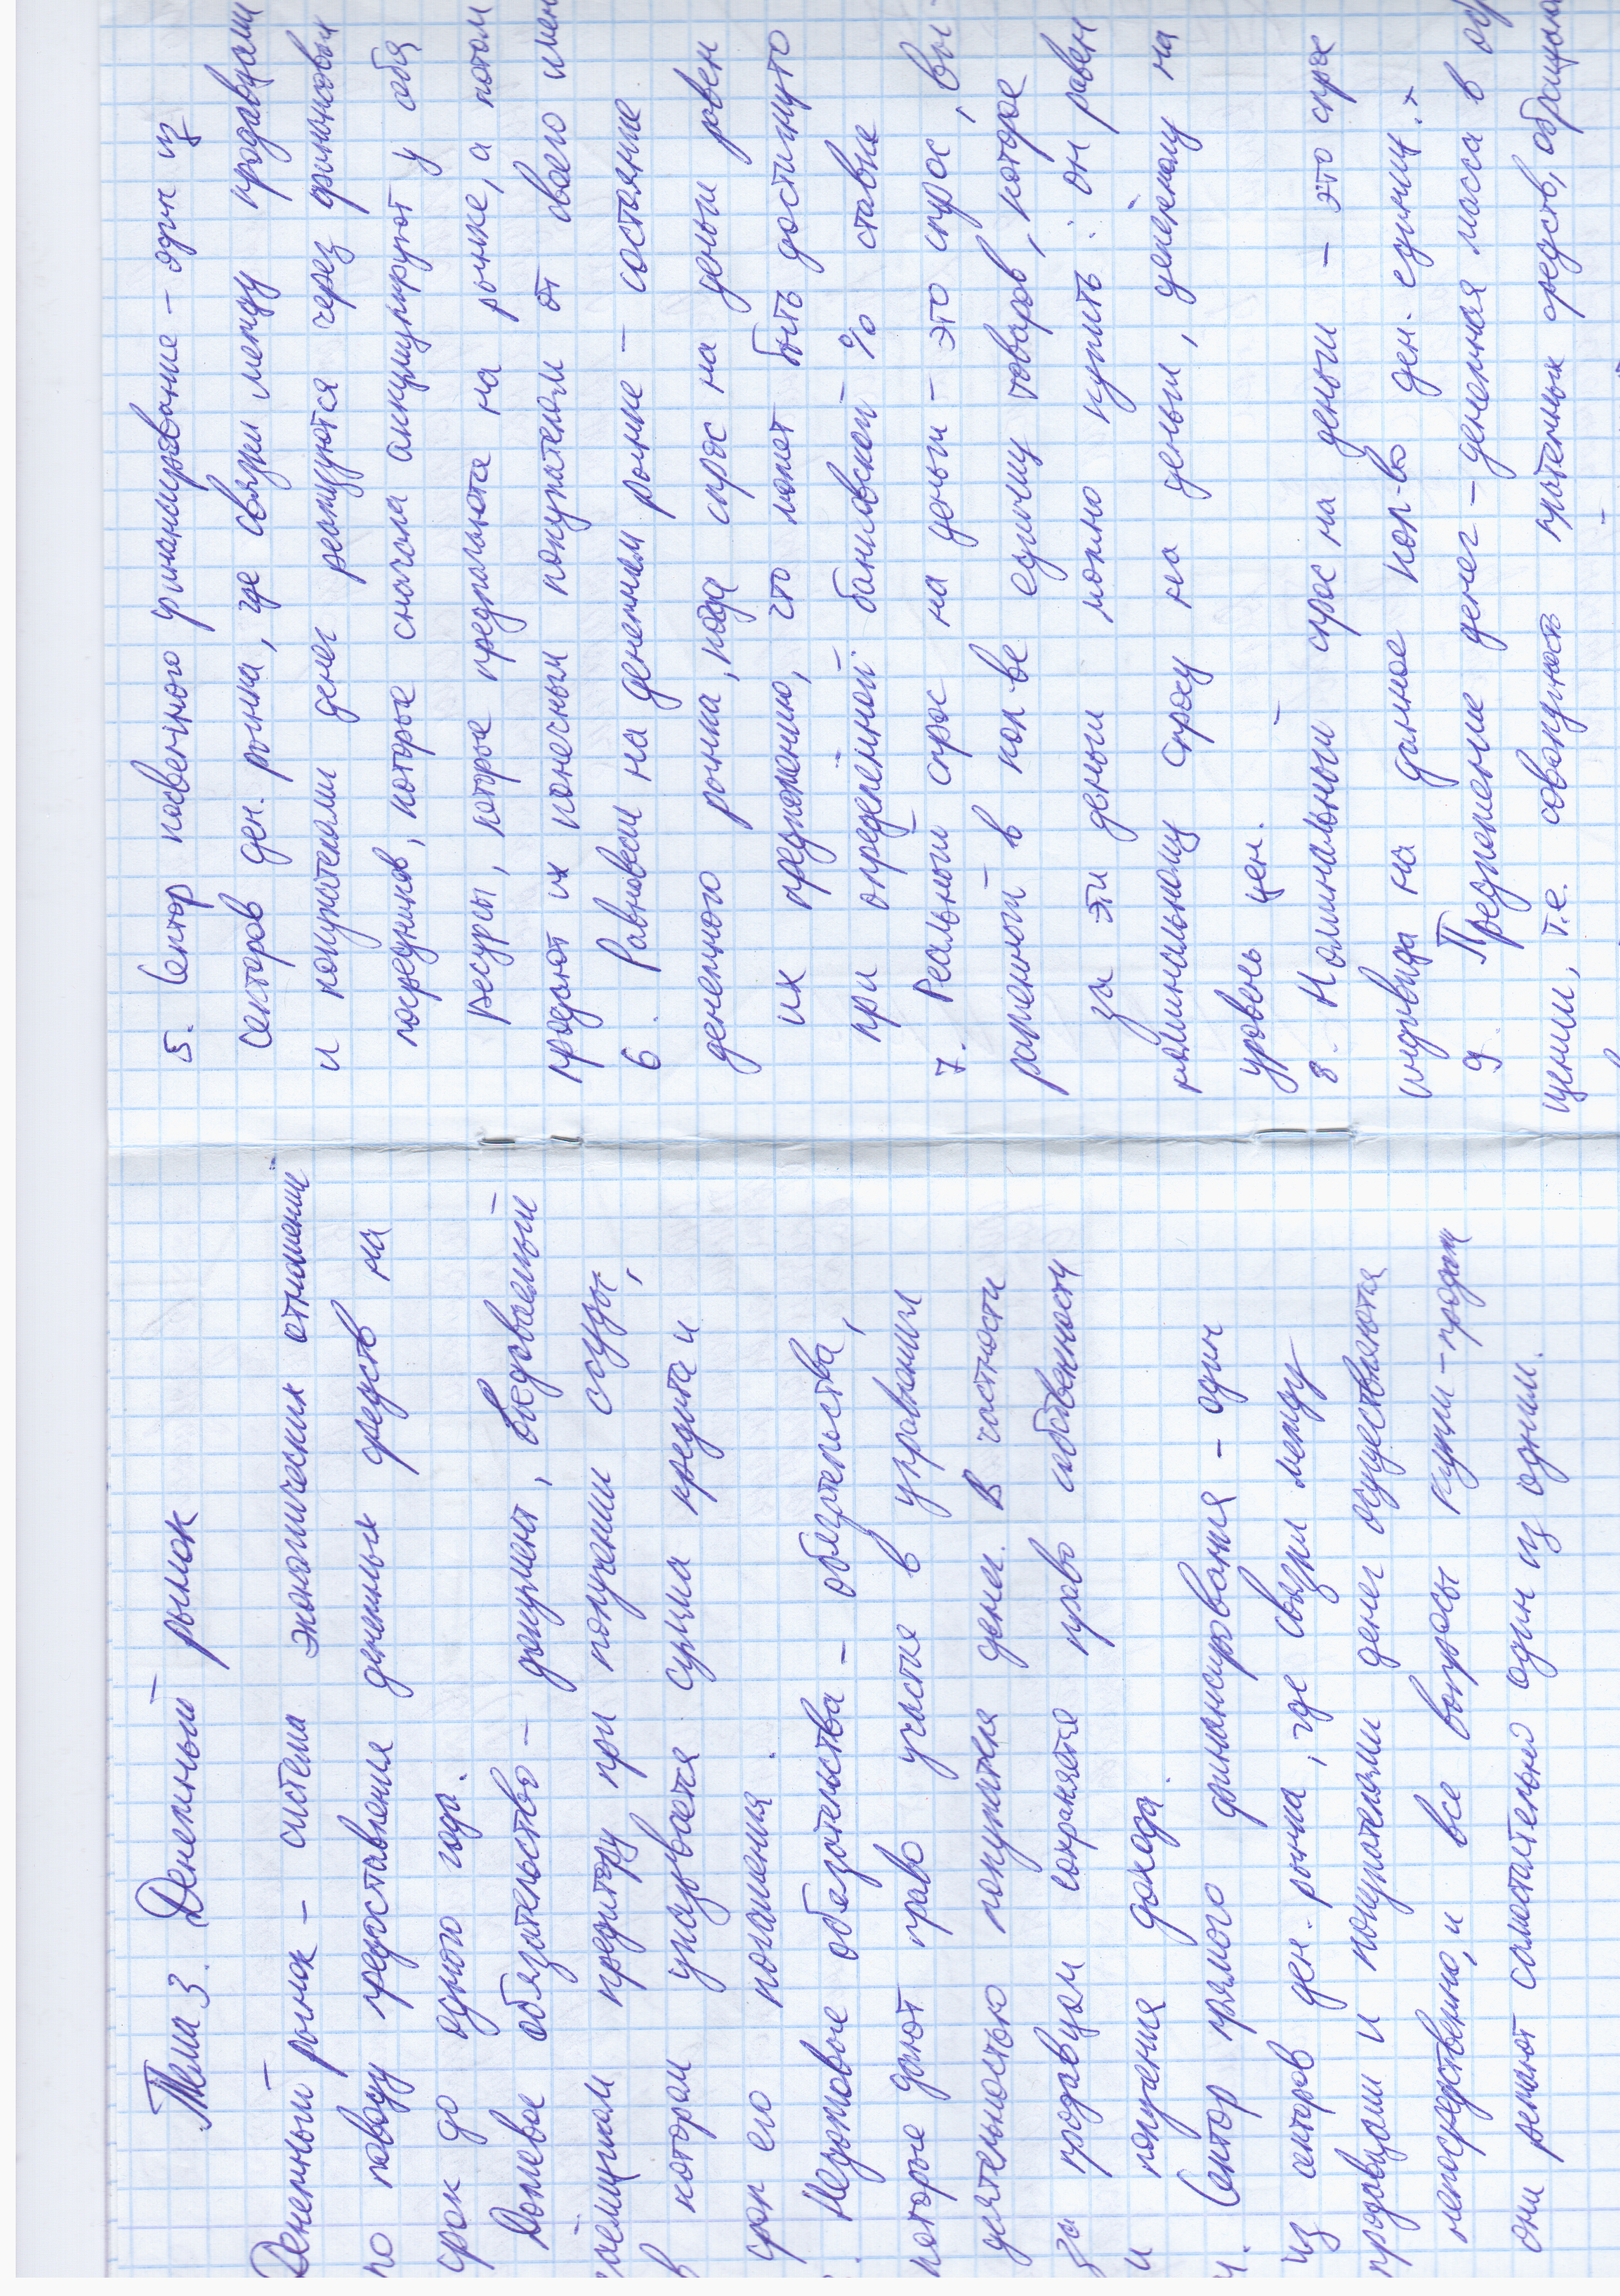 Тема 3. Денежный рынок
Денежный рынок – система экономических отношений
по поводу предоставления денежных средств на
срок до одного года.
Долговое обязательство – документ, выдаваемый
заемщиком кредитору при получении ссуды,
в котором указывается сумма кредита и
срок его погашения.
Недолговые обязательства – обязательства,
которые дают право участия в управлении
деятельностью покупателя денег. В частности
за продавцом сохраняется право собственности
и получения дохода.
4. Сектор прямого финансирования – один
из секторов ден. рынка, где связи между
продавцами и покупателями денег осуществляются
непосредственно, и все вопросы купли-продажи
они решают самостоятельно один из одним.
5. Сектор косвенного финансирование – один из
секторов ден. рынка, где связи между продавцами
и покупателями денег реализуются через финансовых
посредников, которые сначала аккумулируют у себя
ресурсы, которые предлагаются на рынке, а потом
продают их конечным покупателям от своего имен
6. Равновесие на денежном рынке – состояние
денежного рынка, когда спрос на деньги равен
их предложению, что может быть достигнуто
при определенной банковской % ставке
7. Реальный спрос на деньги – это спрос, вы-
раженный в кол-ве единиц товаров, которое
за эти деньги можно купить: он равен
номинальному спросу на деньги, деленому на
уровень цен.
8. Номинальный спрос на деньги – это спрос
индивида на данное кол-во ден. единиц.
9. Предложение денег – денежная масса в обр
щении, т.е. совокупность платежных средств, обращающ